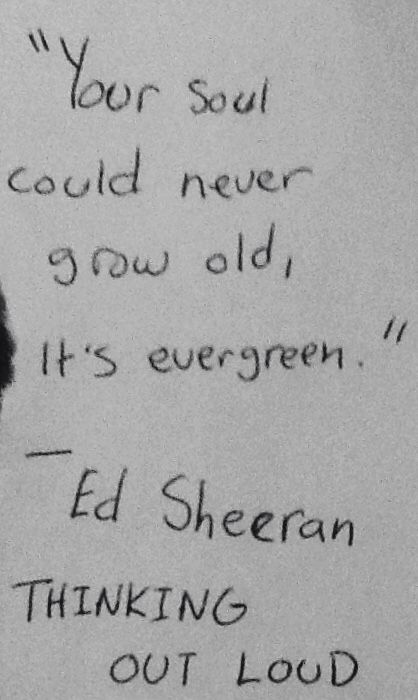 "Your soul
could never
grow old,
It's evergreen."
— Ed Sheeran
THINKING
OUT LOUD